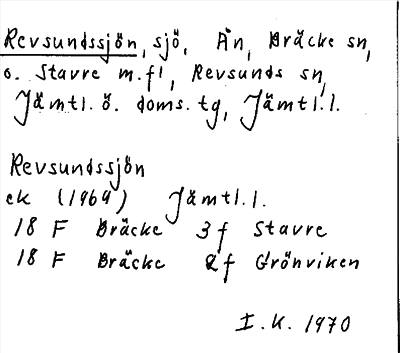 Revsundssjön, sjö, Än, Bräcke sn,
o. Stavre m.fl, Revsunds sn,
Jämtl. ö. doms. tg, Jämtl.l.
Revsundssjön
ek (1969) Jämtl.l.
18 F Bräcke 3 f Stavre
18 F Bräcke 2 f Grönviken
I.K. 1970